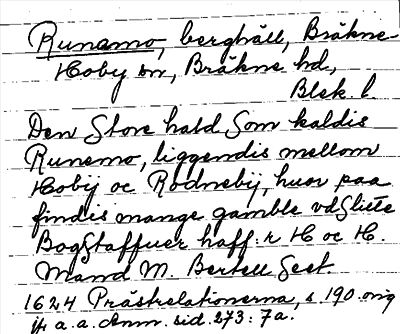 Runamo, berghäll, Bräkne-
Hoby sn, Bräkne hd,
Blek. l.
Den Store hald Som kaldis
Runemo, liggendis mellom
Hobij oc Rodnebij, huor paa
findis mange gamble vdSlitte
BogStaffuer haff: r H oc H.
Mand M. Bertell Seet.
1624 Prästrelationerna, s 190. orig
jfr a. a. Anm. sid. 273: 7a.